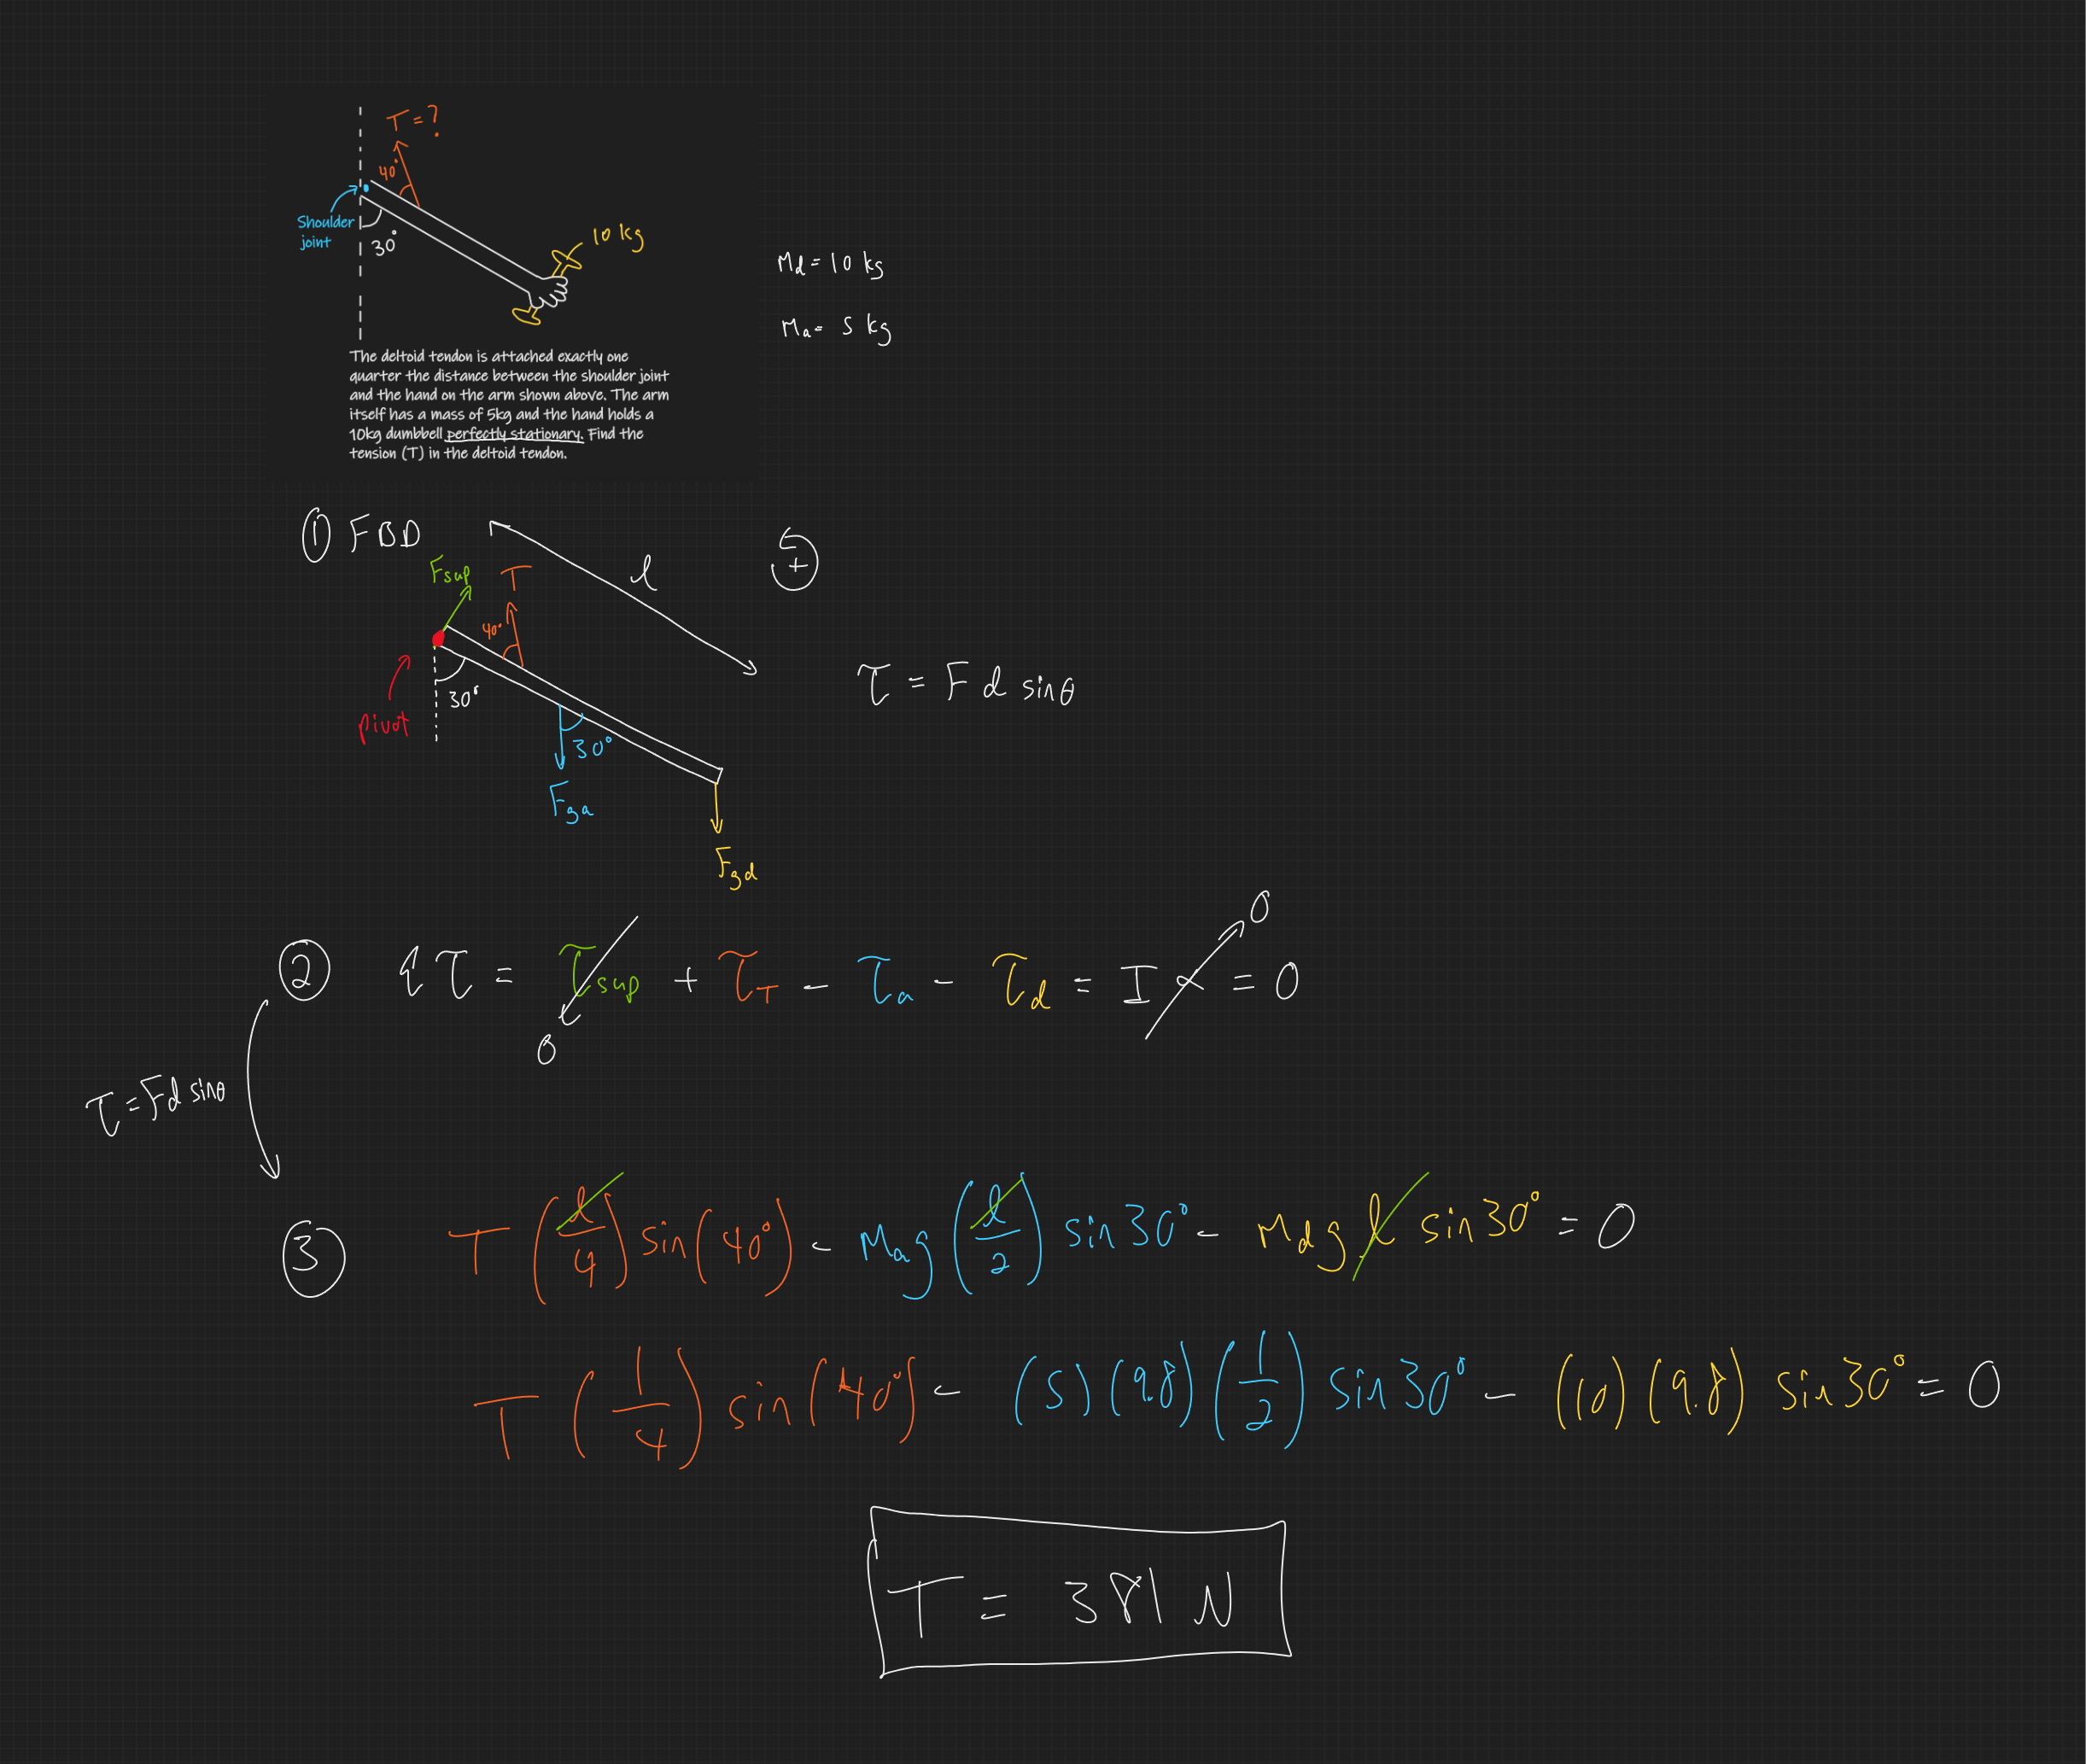 T = ?
40°
Shoulder
joint
30°
10 kg
Md = 10 kg
Ma = 5 kg
The deltoid tendon is attached exactly one
quarter the distance between the shoulder joint
and the hand on the arm shown above. The arm
itself has a mass of 5kg and the hand holds a
10kg dumbbell perfectly stationary. Find the
tension (T) in the deltoid tendon.
① FBD
l
+
Fsup
T
40°
30°
pivot
30°
Fga
Fgd
τ = F d sinθ
② Στ = τsup + τT - τa - τd = Iα = 0
0
0
τ = Fd sinθ
③ T (l/4) sin(40°) - Mag (l/2) sin30° - Mdg l sin30° = 0
T (1/4) sin(40°) - (5)(9.8)(1/2) sin30° - (10)(9.8) sin30° = 0
T = 381 N